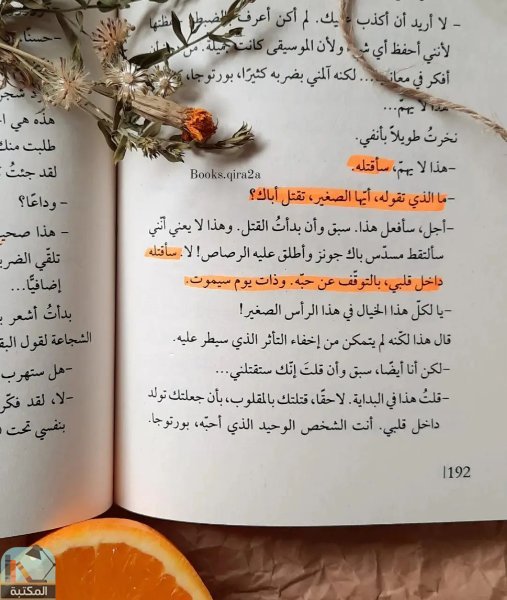 – لا أريد أن أكذب عليك. لم أكن أعرف
لأنني أحفظ أي ولأن الموسيقى كانت جميلة.
أفكر في لكنه آلمني بضربه كثيرًا، بورتوجا،
هذا لا يهمّ...
نخرتُ طويلاً بأنفي.
–هذا لا يهمّ، سأقتله.
–ما الذي تقوله، أيّها الصغير، تقتل أباك؟
–أجل، سأفعل هذا. سبق وأن بدأتُ القتل. وهذا لا يعني أنّني
سألتقط مسدّس باك جونز وأطلق عليه الرصاص! لا. سأقتله
داخل قلبي، بالتوقّف عن حبّه. وذات يوم سيموت.
–يا لكلّ هذا الخيال في هذا الرأس الصغير!
قال هذا لكنّه لم يتمكن من إخفاء التأثر الذي سيطر عليه.
–لكن أنا أيضًا، سبق وأن قلتَ إنّك ستقتلني...
–قلتُ هذا في البداية. لاحقًا، قتلتك بالمقلوب، بأن جعلتك تولد
داخل قلبي. أنت الشخص الوحيد الذي أحبّه، بورتوجا.
192
Books.qira2a
– حسنًا.
هذه هي
طلبت منك
لقد جئتُ
– وداعًا؟
– هذا صحيح
تلقّي
إضافيًّا...
بدأتُ أشعر
الشجاعة لقول
–هل ستهرب
–لا، لقد
بنفسي تحت
المكتبة